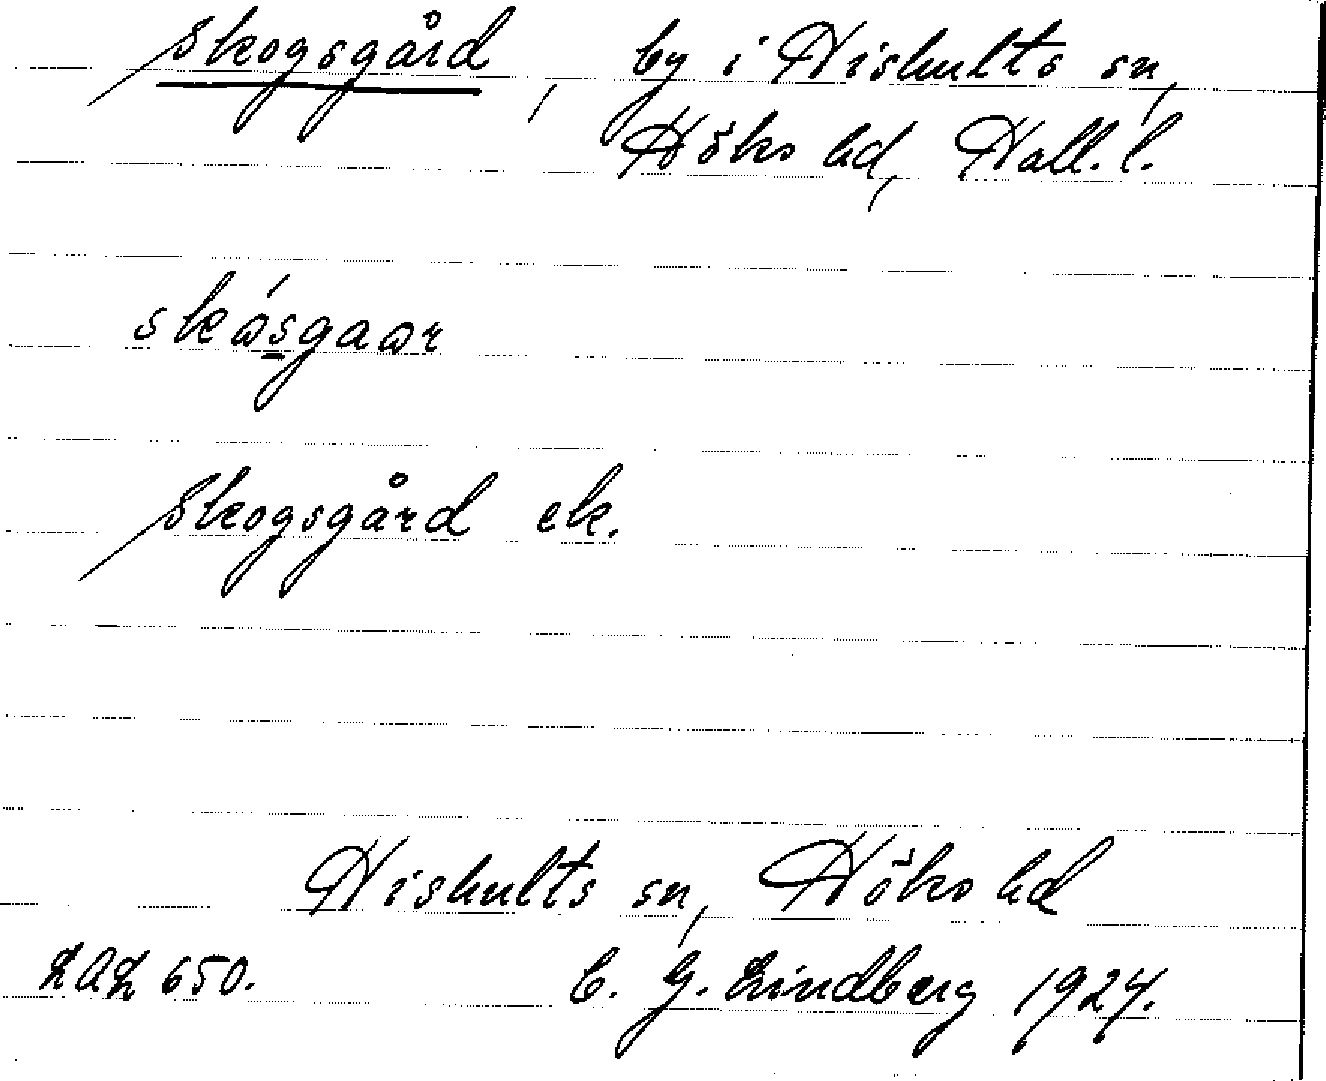 Skogsgård, by i Hishults sn,
Höks hd, Hall. l.
skåsgaar
Skogsgård ek.
Hishults sn, Höks hd
LAL 650. C. G. Lindberg 1924.